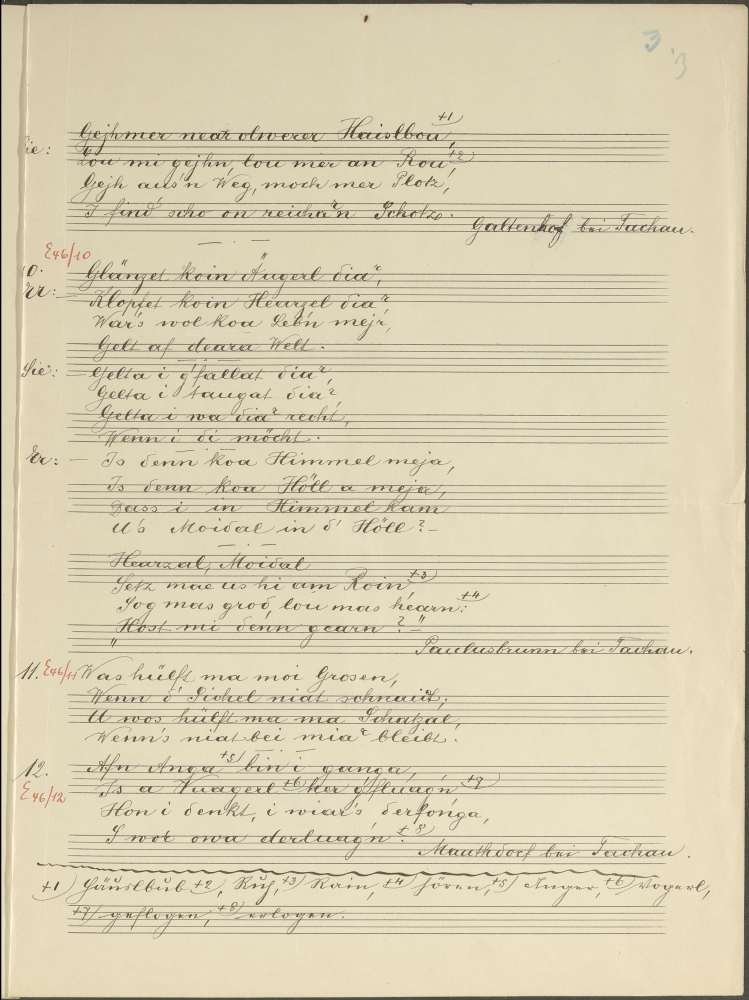 3 3
Gejh mer near olwerer Haislbou, +1)
Sie: Lou mi gejhn, lou mer an Rou! +2)
Gejh aus'n Weg, moch mer Plotz,
I find scho on reicha'n Schotz.
Galtenhof bei Tachau.
E46/10
10. Glänzet koin Äugerl diar,
Er: – Klopfet koin Hearzel diar
War's wol koa Leb'n mejr,
Gelt af deara Welt.
Sie: – Gelta i g'fallat diar,
Gelta i taugat diar,
Gelta i wa diar recht,
Wenn i di möcht.
Er: – Is denn koa Himmel meja,
Is denn koa Höll a meja,
Dass i in Himmel kam
U's Moidal in d' Höll? –
Hearzal, Moidal
Setz ma us hi am Roin, +3)
Sog mas grod, lou mas hearn: +4)
"Host mi denn gearn?"
Paulusbrunn bei Tachau.
11. E46/11 Was hülft ma moi Grosen,
Wenn d' Sichel niat schneidt;
U wos hülft ma ma Schatzal,
Wenn's niat bei miar bleibt.
12. Afn Anga +5) bin i ganga,
E46/12 Is a Vuagerl +6) her g'fluag'n +7)
Hon i denkt, i wiar's derfonga,
I wor owa derluag'n. +8)
Mauthdorf bei Tachau.
+1) Häuslbub +2), Ruh, +3) Rain, +4) hören, +5) Anger, +6) Vogerl,
+7) geflogen, +8) erlogen.